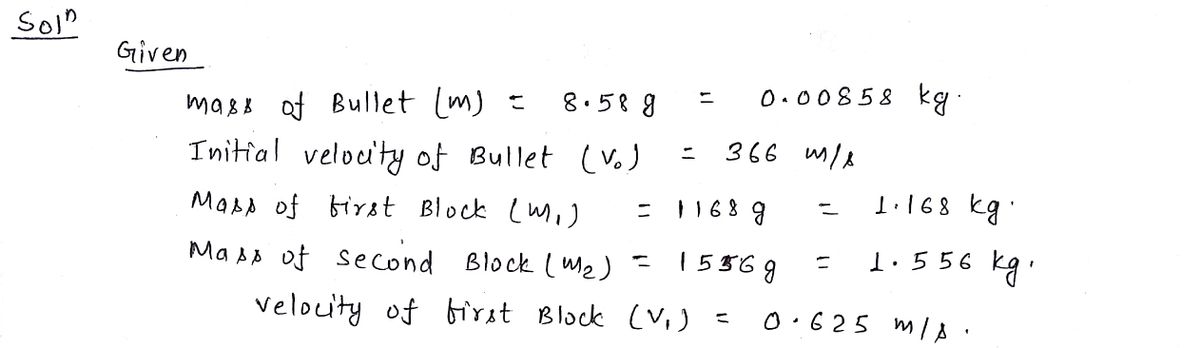 Solⁿ
Given
mass of Bullet (m) = 8.58 g = 0.00858 kg.
Initial velocity of Bullet (v₀) = 366 m/s
Mass of first Block (m₁) = 1168 g = 1.168 kg.
Mass of second Block (m₂) = 1556 g = 1.556 kg.
velocity of first Block (v₁) = 0.625 m/s.